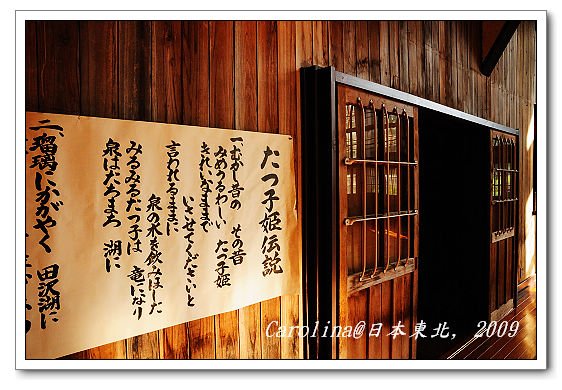 たつ子姫伝説
一、むかし昔の その昔
みめうるわしい たつ子姫
きれいなままで
いさせてくださいと
言われるままに
泉の水を飲みほした
みるみるたつ子は 竜になり
泉はたちまち 湖に
二、瑠璃にかがやく 田沢湖に
Carolina@日本東北, 2009